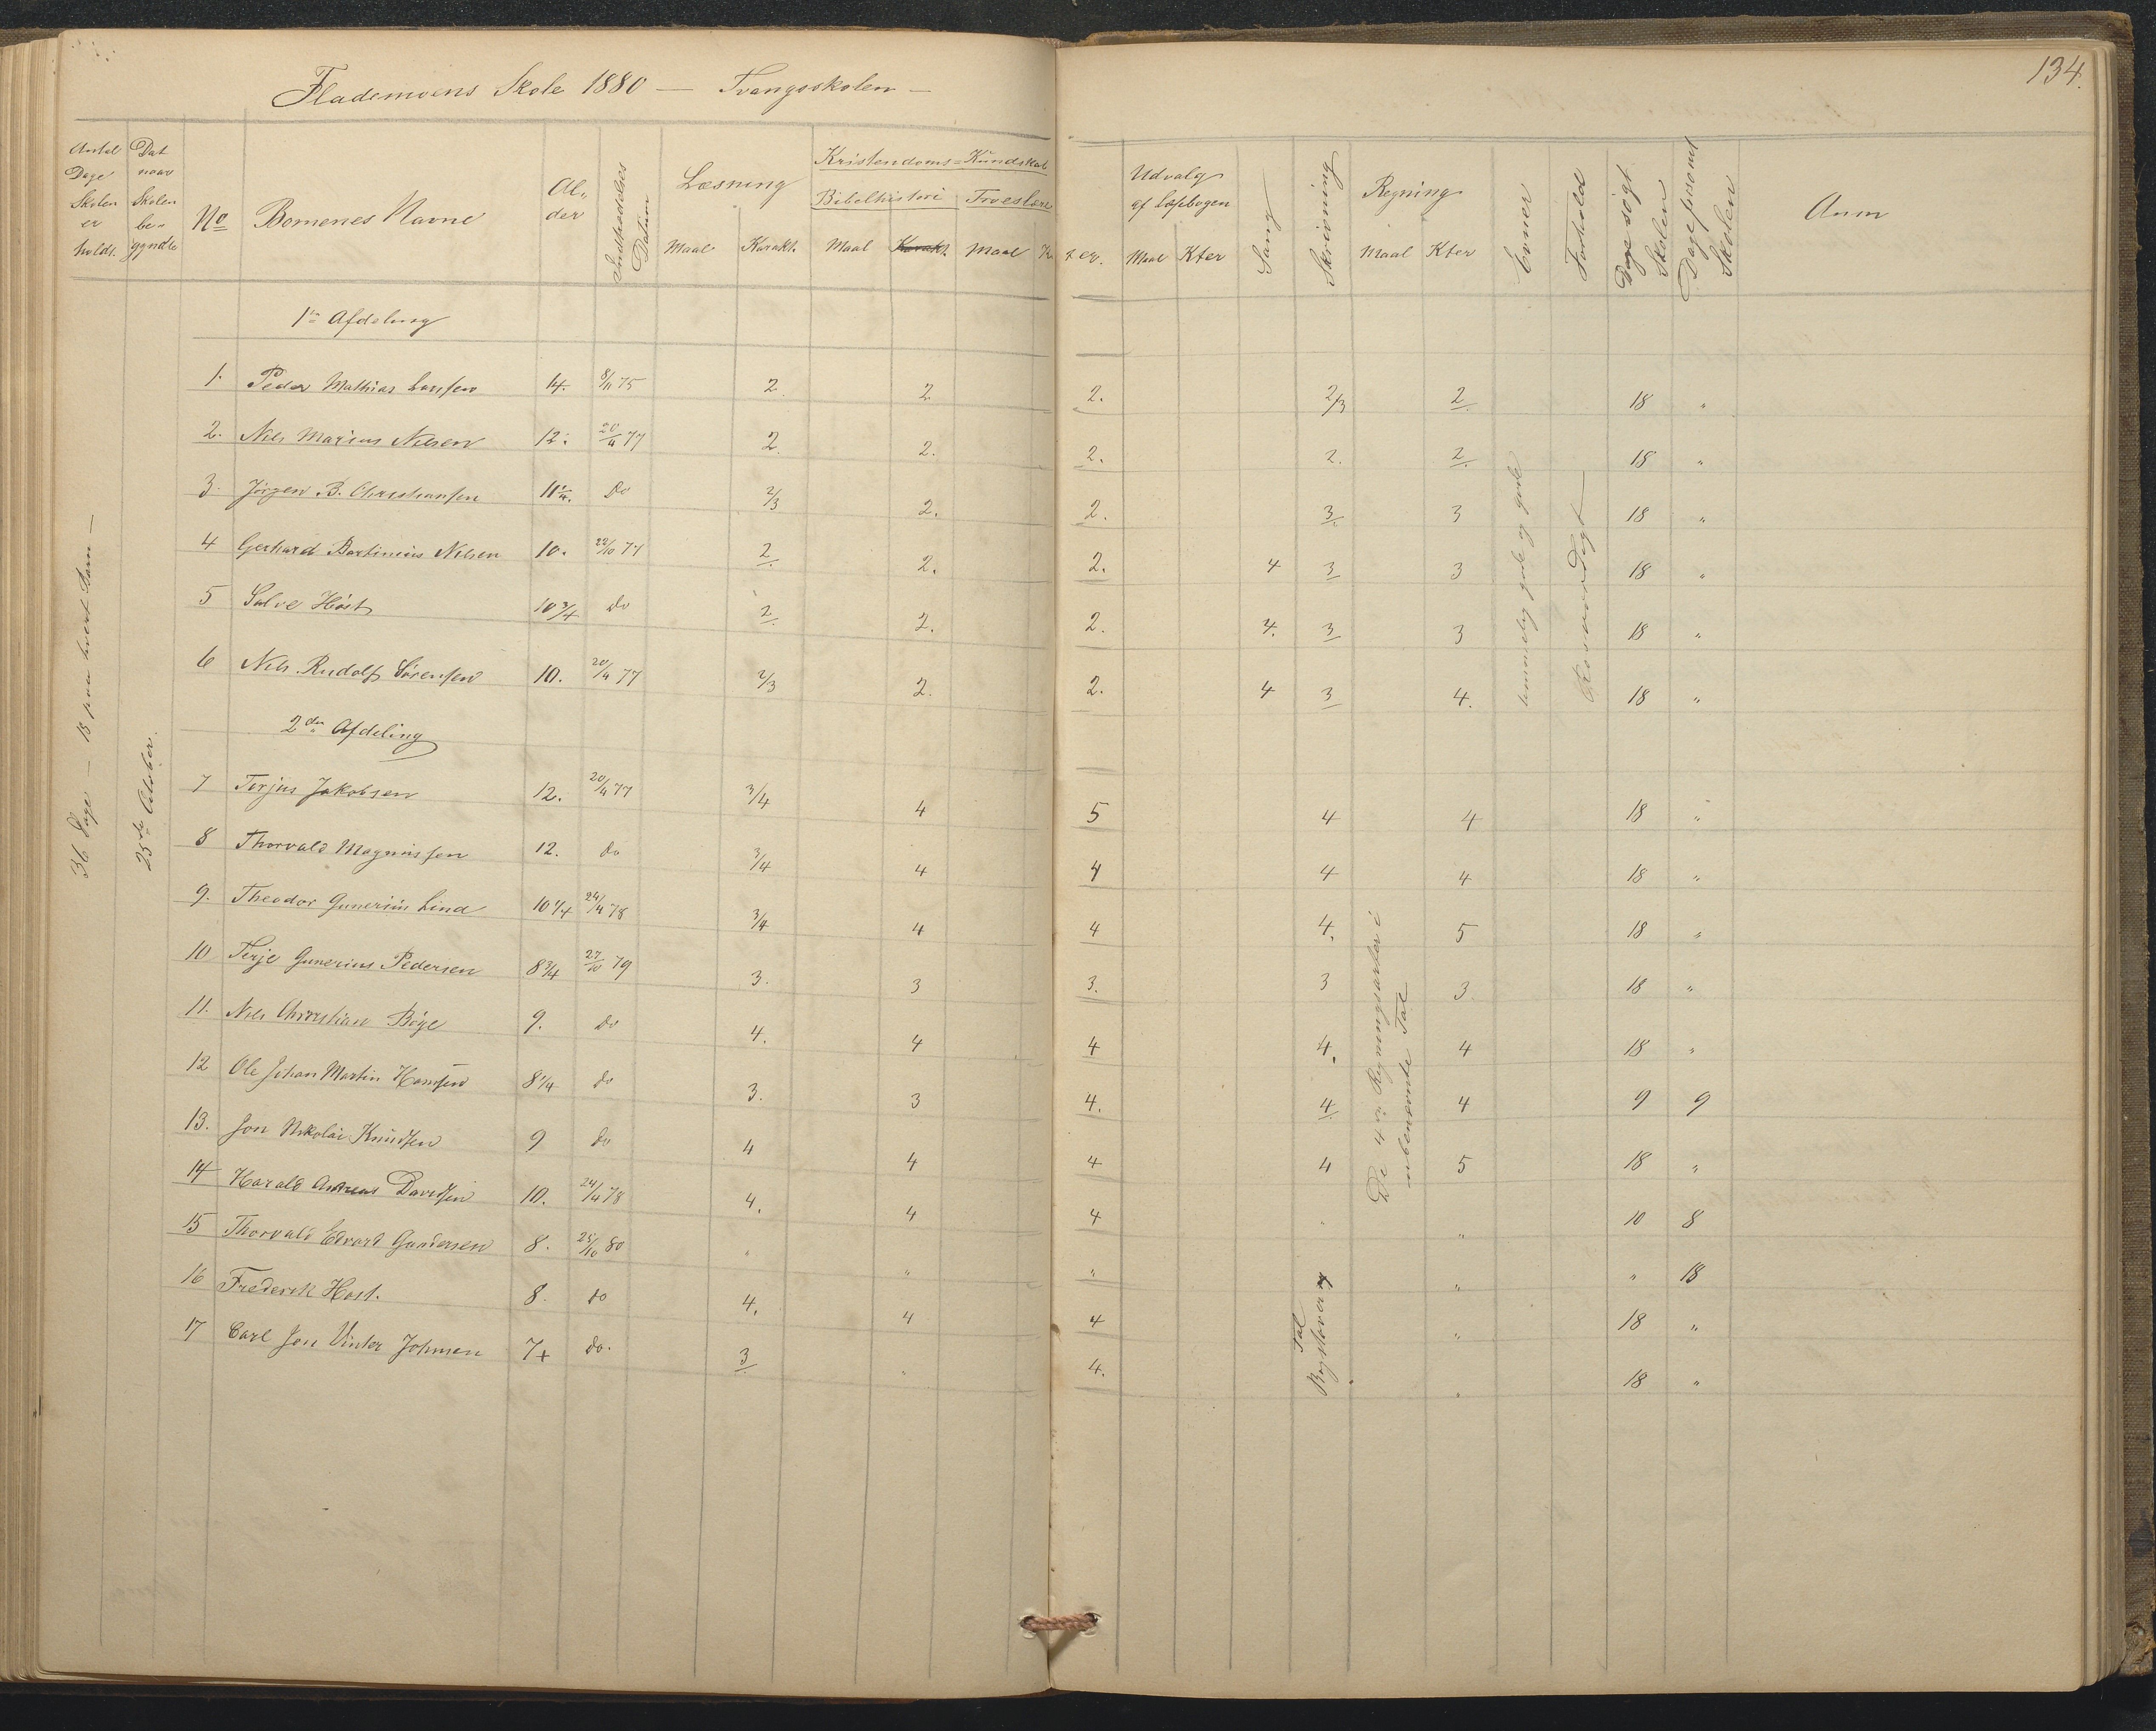 134.
Flademoens Skole 1880 — Tvangsskolen —
Antal Dage Skolen er holdt. | Dat naar Skolen be-gyndte | No | Bornenes Navne | Al-der | Indtrædelses Datum | Læsning Maal Karakt. | Kristendoms-Kundskab Bibelhistori Maal Karakt. | Troeslære Maal K ter. | Udvalg af Læsebogen Maal Kter | Sang | Skrivning | Regning Maal Kter | Evner | Forhold | Dage søgt Skolen | Dage forsømt Skolen | Anm
36 Dage — 18 paa hvert Barn —
25de October.
1te Afdeling
1. Peder Mathias Larssen 14. 8/11 75 2. 2 2. 2/3 2. 18 "
2. Nils Marius Nilsen 12. 20/4 77 2. 2. 2. 2. 2. 18 "
3. Jörgen B. Christiansen 11 1/4. Do 2/3 2. 2. 3. 3 18 "
4 Gerhard Bertinius Nilsen 10. 22/10 77 2. 2. 2. 4 3 3 18 "
5 Salve Höst 10 3/4 do 2. 2. 2. 4. 3 3 18 "
6 Nils Rudolf Sörensen 10. 20/4 77 2/3 2. 2. 4 3 4. 18 "
temmelig gode og gode
Rosværdigt
2den Afdeling
7 Terjus Jakobsen 12. 20/4 77 3/4 4 5 4 4 18 "
8 Thorvald Magnussen 12. do 3/4 4 4 4 4 18 "
9. Theodor Gunerius Lind 10 1/4 24/4 78 3/4 4 4 4. 5 18 "
10 Terje Gunerius Pedersen 8 3/4 27/10 79 3. 3 3. 3 3 18 "
11. Nils Christian Böge 9. do 4. 4 4 4. 4 18 "
12 Ole Johan Martin Hansen 8 1/4 do 3. 3 4. 4. 4 9 9
13. Jon Nikolai Knudsen 9 do 4 4 4 4 5 18 "
14 Harald Andreas Davidsen 10. 24/4 78 4. 4 4 " " 10 8
15 Thorvald Edvard Gundersen 8. 25/10 80 " " " " " 18
16 Frederik Höst. 8. do 4. 4 4 " 18 "
17 Carl Jon Vinter Johnsen 7+ do. 3 . 4. " 18 "
De 4 Regningsarter i ubenævnte Tal
Tal Bogstaver og